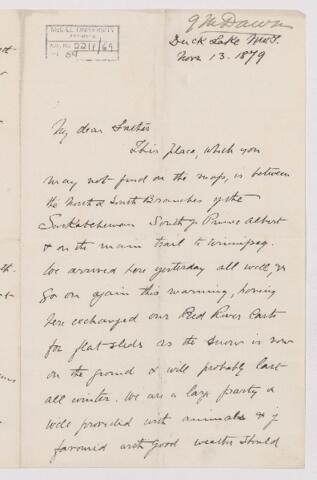 G M Dawson
McGILL UNIVERSITY
ARCHIVES
ACC. NO. 2211/69
REF. 59
Duck Lake NWT.
Nov. 13. 1879
My dear Father
This place, which you
may not find on the map, is between
the North & South Branches of the
Saskatchewan South of Prince Albert
& on the main trail to Winnipeg.
We arrived here yesterday all well, &
go on again this morning, having
here exchanged our Red River Carts
for flat sleds as the snow is now
on the ground & will probably last
all winter. We are a large party &
well provided with animals & if
favoured with good weather should